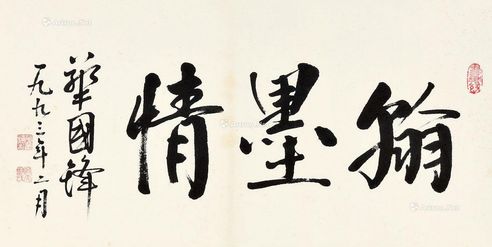 翰墨情
華國鋒
一九九三年二月